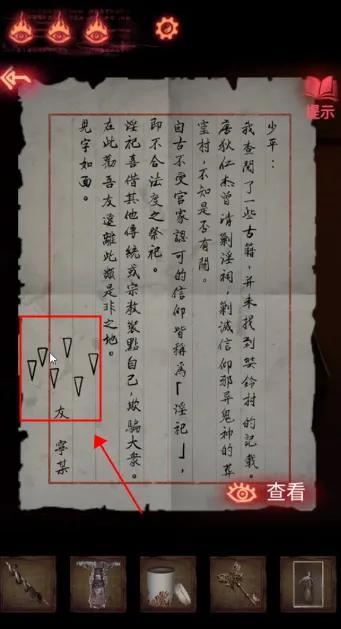 提示
少平：
我查閱了一些古籍，并未找到哭鈴村的記載。
唐狄仁杰曾清剿淫祠，剿滅信仰邪异鬼神的草
蛮村，不知是否有關。
自古不受官家認可的信仰皆稱爲「淫祀」，
即不合法度之祭祀。
淫祀喜借其他傳統或宗教裝點自己，欺騙大衆。
在此勸吾友遠離此類是非之地。
見字如面。
友
寧某
查看